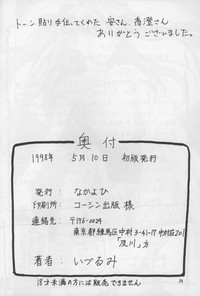 トーン貼り手伝ってくれた 安さん、香澄さん
ありがとうございました。
奥付
1998年 5月10日 初版発行
発行：なかよひ
印刷所：コーシン出版 様
連絡先：〒176-0024
東京都練馬区中村3-41-17 中村荘201
「及川」方
著者：いづるみ
18才未満の方には販売できません